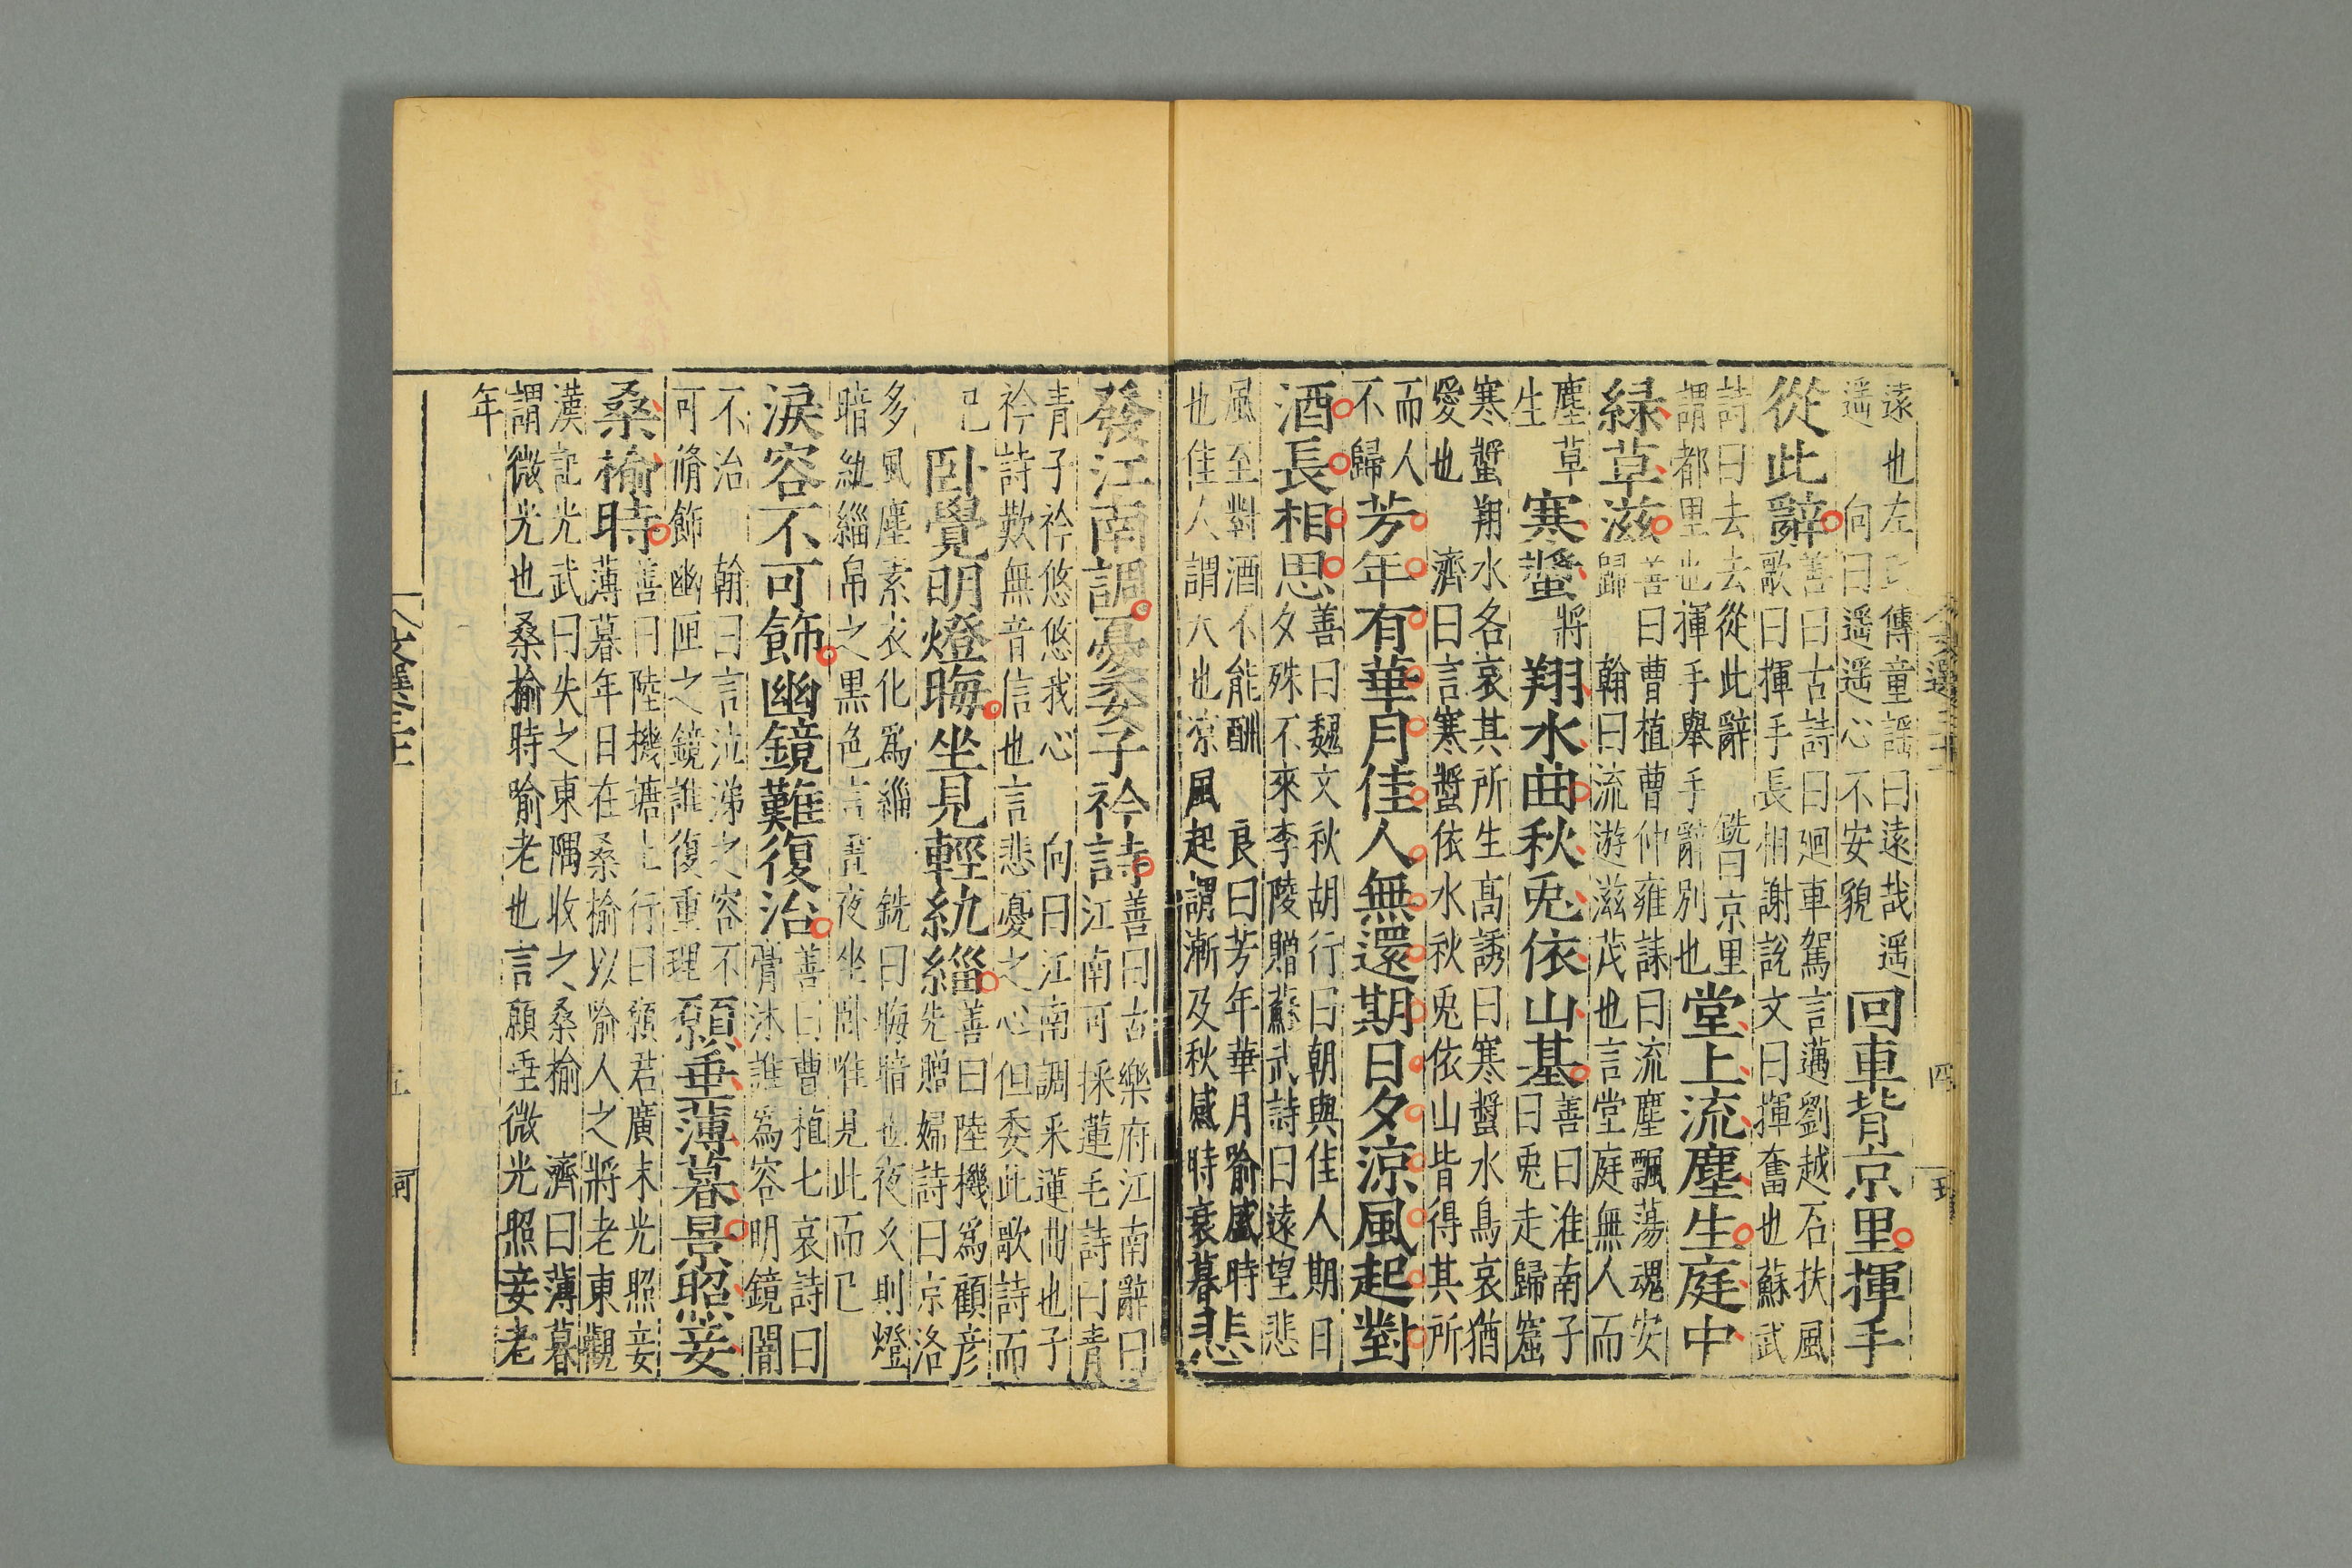 遠也左氏傳童謡曰遠哉遥
遥　向曰遥遥心不安貌
回車背京里揮手
從此辭
善曰古詩曰廻車駕言邁劉越石扶風
歌曰揮手長相謝説文曰揮奮也蘇武
詩曰去去從此辭　銑曰京里
謂都里也揮手舉手辭別也
堂上流塵生庭中
緑草滋
善曰曹植曹仲雍誄曰流塵飄蕩魂安
歸　翰曰流游滋茂也言堂庭無人而
塵草
生
寒螿
將
翔水曲秋兎依山基
善曰淮南子
曰兎走歸窟
寒螿翔水各哀其所生髙誘曰寒螿水鳥哀猶
愛也　濟曰言寒螿依水秋兎依山皆得其所
而人
不歸
芳年有華月佳人無還期日夕涼風起對
酒長相思
善曰魏文秋胡行曰朝與佳人期日
夕殊不來李陵贈蘇武詩曰遠望悲
風至對酒不能酬　良曰芳年華月喻盛時
也佳人謂大也凉風起謂漸及秋感時衰暮
悲
發江南調憂委子衿詩
善曰古樂府江南辭曰
江南可採蓮毛詩曰青
青子衿悠悠我心　向曰江南調釆蓮曲也子
衿詩歎無音信也言悲憂之心但委此歌詩而
已
卧覺明燈晦坐見輕紈緇
善曰陸機爲顧彦
先贈婦詩曰京洛
多風塵素衣化爲緇　銑曰晦暗也夜久則燈
暗紈緇帛之黒色言晝夜坐卧唯見此而已
淚容不可飾幽鏡難復治
善曰曹植七哀詩曰
膏沐誰爲容明鏡闇
不治　翰曰言泣涕之容不
可脩飾幽匣之鏡誰復重理
願垂薄暮景照妾
桑榆時
善曰陸機塘上行曰願君廣末光照妾
薄暮年日在桑榆以喻人之將老東觀
漢記光武曰失之東隅收之桑榆　濟曰薄暮
謂微光也桑榆時喻老也言願垂微光照妾老
年